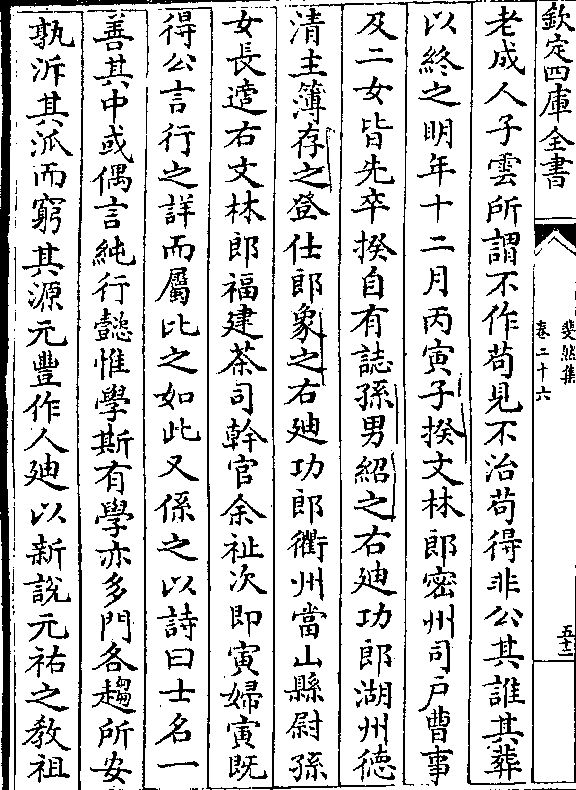 欽定四庫全書
斐然集
卷二十六
五十二
老成人子雲所謂不作苟見不治苟得非公其誰其葬
以終之明年十二月丙寅子揆文林郎密州司戶曹事
及二女皆先卒揆自有誌孫男紹之右廸功郎湖州德
清主簿存之登仕郎象之右廸功郎衢州當山縣尉孫
女長適右文林郎福建茶司幹官余祉次即寅婦寅既
得公言行之詳而屬比之如此又係之以詩曰士名一
善其中或偶言純行懿惟學斯有學亦多門各趨所安
孰泝其派而窮其源元豐作人廸以新說元祐之教祖